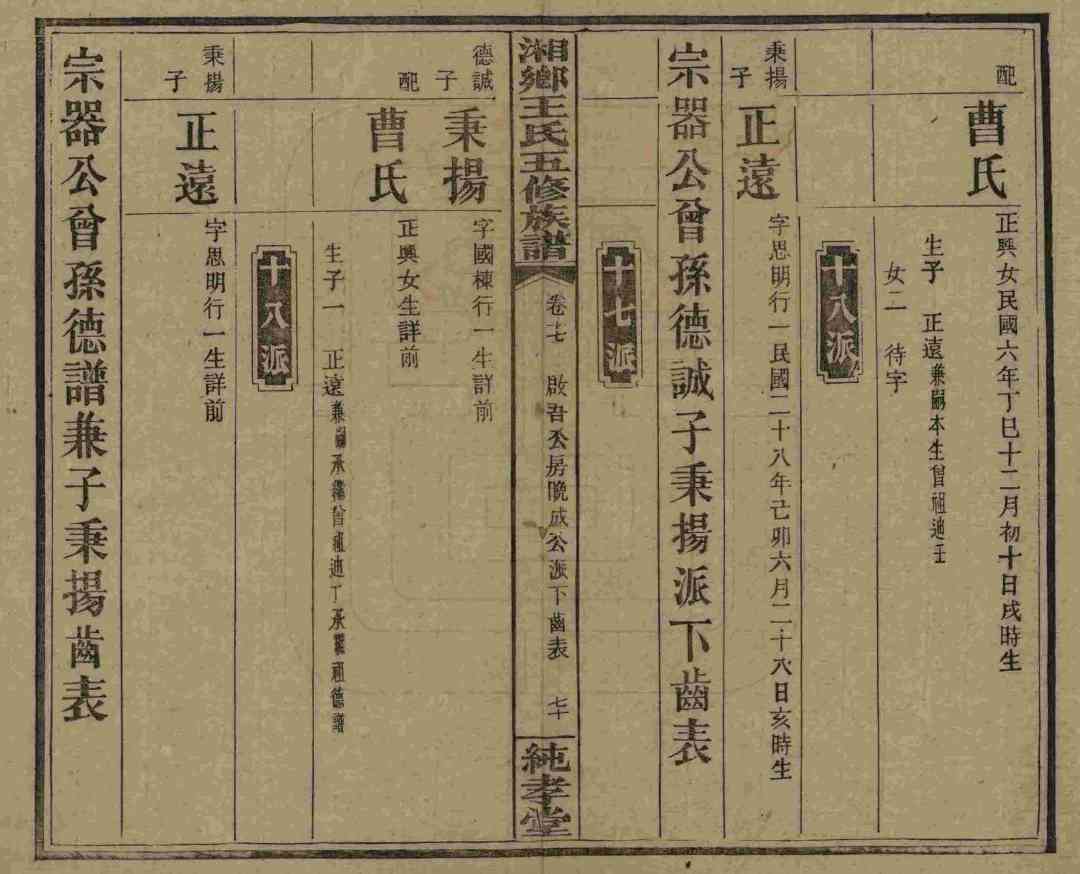 配
曹氏
正興女民國六年丁巳十二月初十日戌時生
生子 正遠兼嗣本生曾祖迪壬
女二 待字
十八派
秉揚子
正遠
字思明行一民國二十八年己卯六月二十六日亥時生
宗器公曾孫德誠子秉揚派下齒表
十七派
湘鄉王氏五修族譜
卷十七 啟吾公房晚成公派下齒表 七十
純孝堂
德誠子
秉揚
字國棟行一生詳前
配
曹氏
正興女生詳前
生子一 正遠兼嗣承繼曾祖迪丁承繼祖德譜
十八派
秉揚子
正遠
字思明行一生詳前
宗器公曾孫德譜兼子秉揚齒表